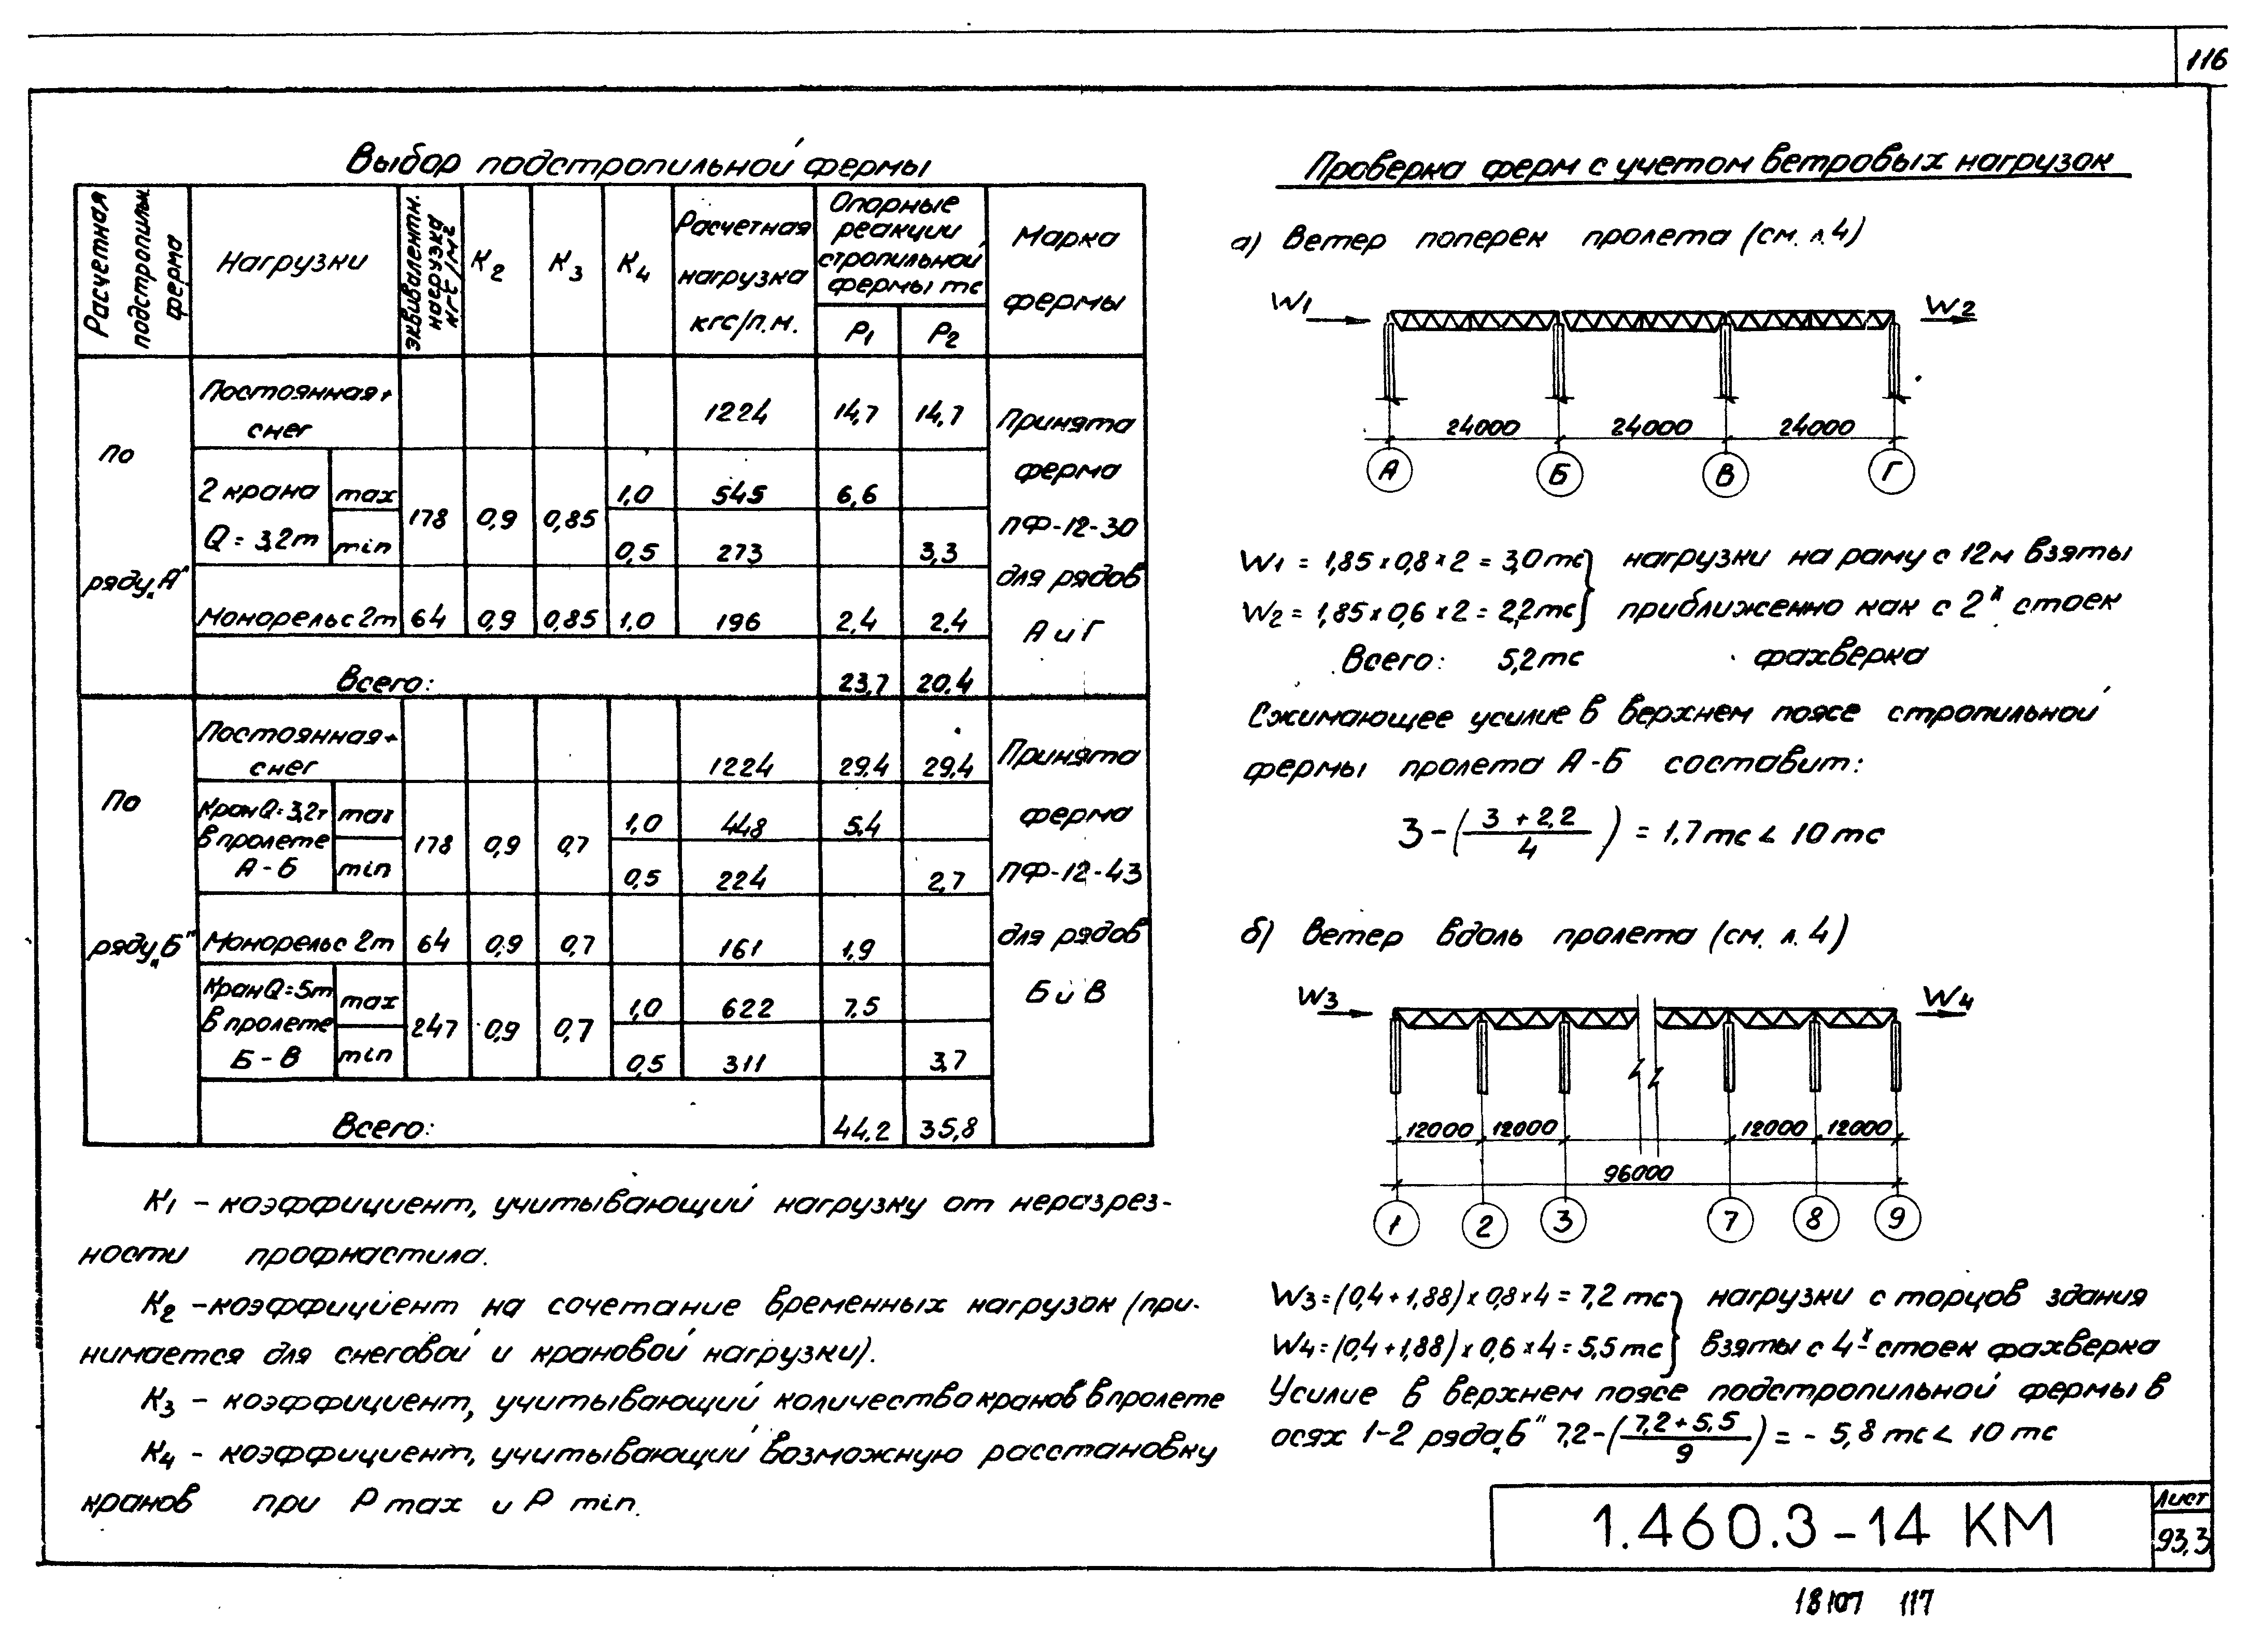 116
Выбор подстропильной фермы
Расчетная подстропильн. ферма
Нагрузки
эквивалентн. нагрузка кгс/м²
К2
К3
К4
Расчетная нагрузка кгс/п.м.
Опорные реакции стропильной фермы тс
Р1
Р2
Марка фермы
По ряду „А"
Постоянная + снег
1224 14,7 14,7
2 крана Q = 3,2т
max
min
178 0,9 0,85
1,0 545 6,6
0,5 273 3,3
Монорельс 2т 64 0,9 0,85 1,0 196 2.4 2.4
Всего: 23,7 20.4
Принята
ферма
ПФ-12-30
для рядов
А и Г
По ряду „Б"
Постоянная + снег
1224 29.4 29.4
Кран Q = 3,2т в пролете А - Б
max
min
178 0,9 0,7
1,0 448 5.4
0,5 224 2,7
Монорельс 2т 64 0,9 0,7 161 1,9
Кран Q = 5т в пролете Б - В
max
min
247 0,9 0,7
1,0 622 7,5
0,5 311 3,7
Всего: 44,2 35,8
Принята
ферма
ПФ-12-43
для рядов
Б и В
К1 - коэффициент, учитывающий нагрузку от неразрез-
ности профнастила.
К2 - коэффициент на сочетание временных нагрузок (при-
нимается для снеговой и крановой нагрузки).
К3 - коэффициент, учитывающий количество кранов в пролете
К4 - коэффициент, учитывающий возможную расстановку
кранов при Р max и Р min.
Проверка ферм с учетом ветровых нагрузок
а) Ветер поперек пролета (см. л. 4)
W1 W2
24000 24000 24000
А Б В Г
W1 = 1,85 x 0,8 x 2 = 3,0 тс } нагрузки на раму с 12м взяты
W2 = 1,85 x 0,6 x 2 = 2,2 тс } приближенно как с 2х стоек
Всего: 5,2 тс фахверка
Сжимающее усилие в верхнем поясе стропильной
фермы пролета А - Б составит:
3 - ( (3 + 2,2) / 4 ) = 1,7 тс < 10 тс
б) Ветер вдоль пролета (см. л. 4)
W3 W4
12000 12000 12000 12000
96000
1 2 3 7 8 9
W3 = (0,4 + 1,88) x 0,8 x 4 = 7,2 тс } нагрузки с торцов здания
W4 = (0,4 + 1,88) x 0,6 x 4 = 5,5 тс } взяты с 4х стоек фахверка
Усилие в верхнем поясе подстропильной фермы в
осях 1-2 ряда „Б" 7,2 - ( (7,2 + 5,5) / 9 ) = - 5,8 тс < 10 тс
1.460.3-14 КМ
Лист
93,3
18107 117